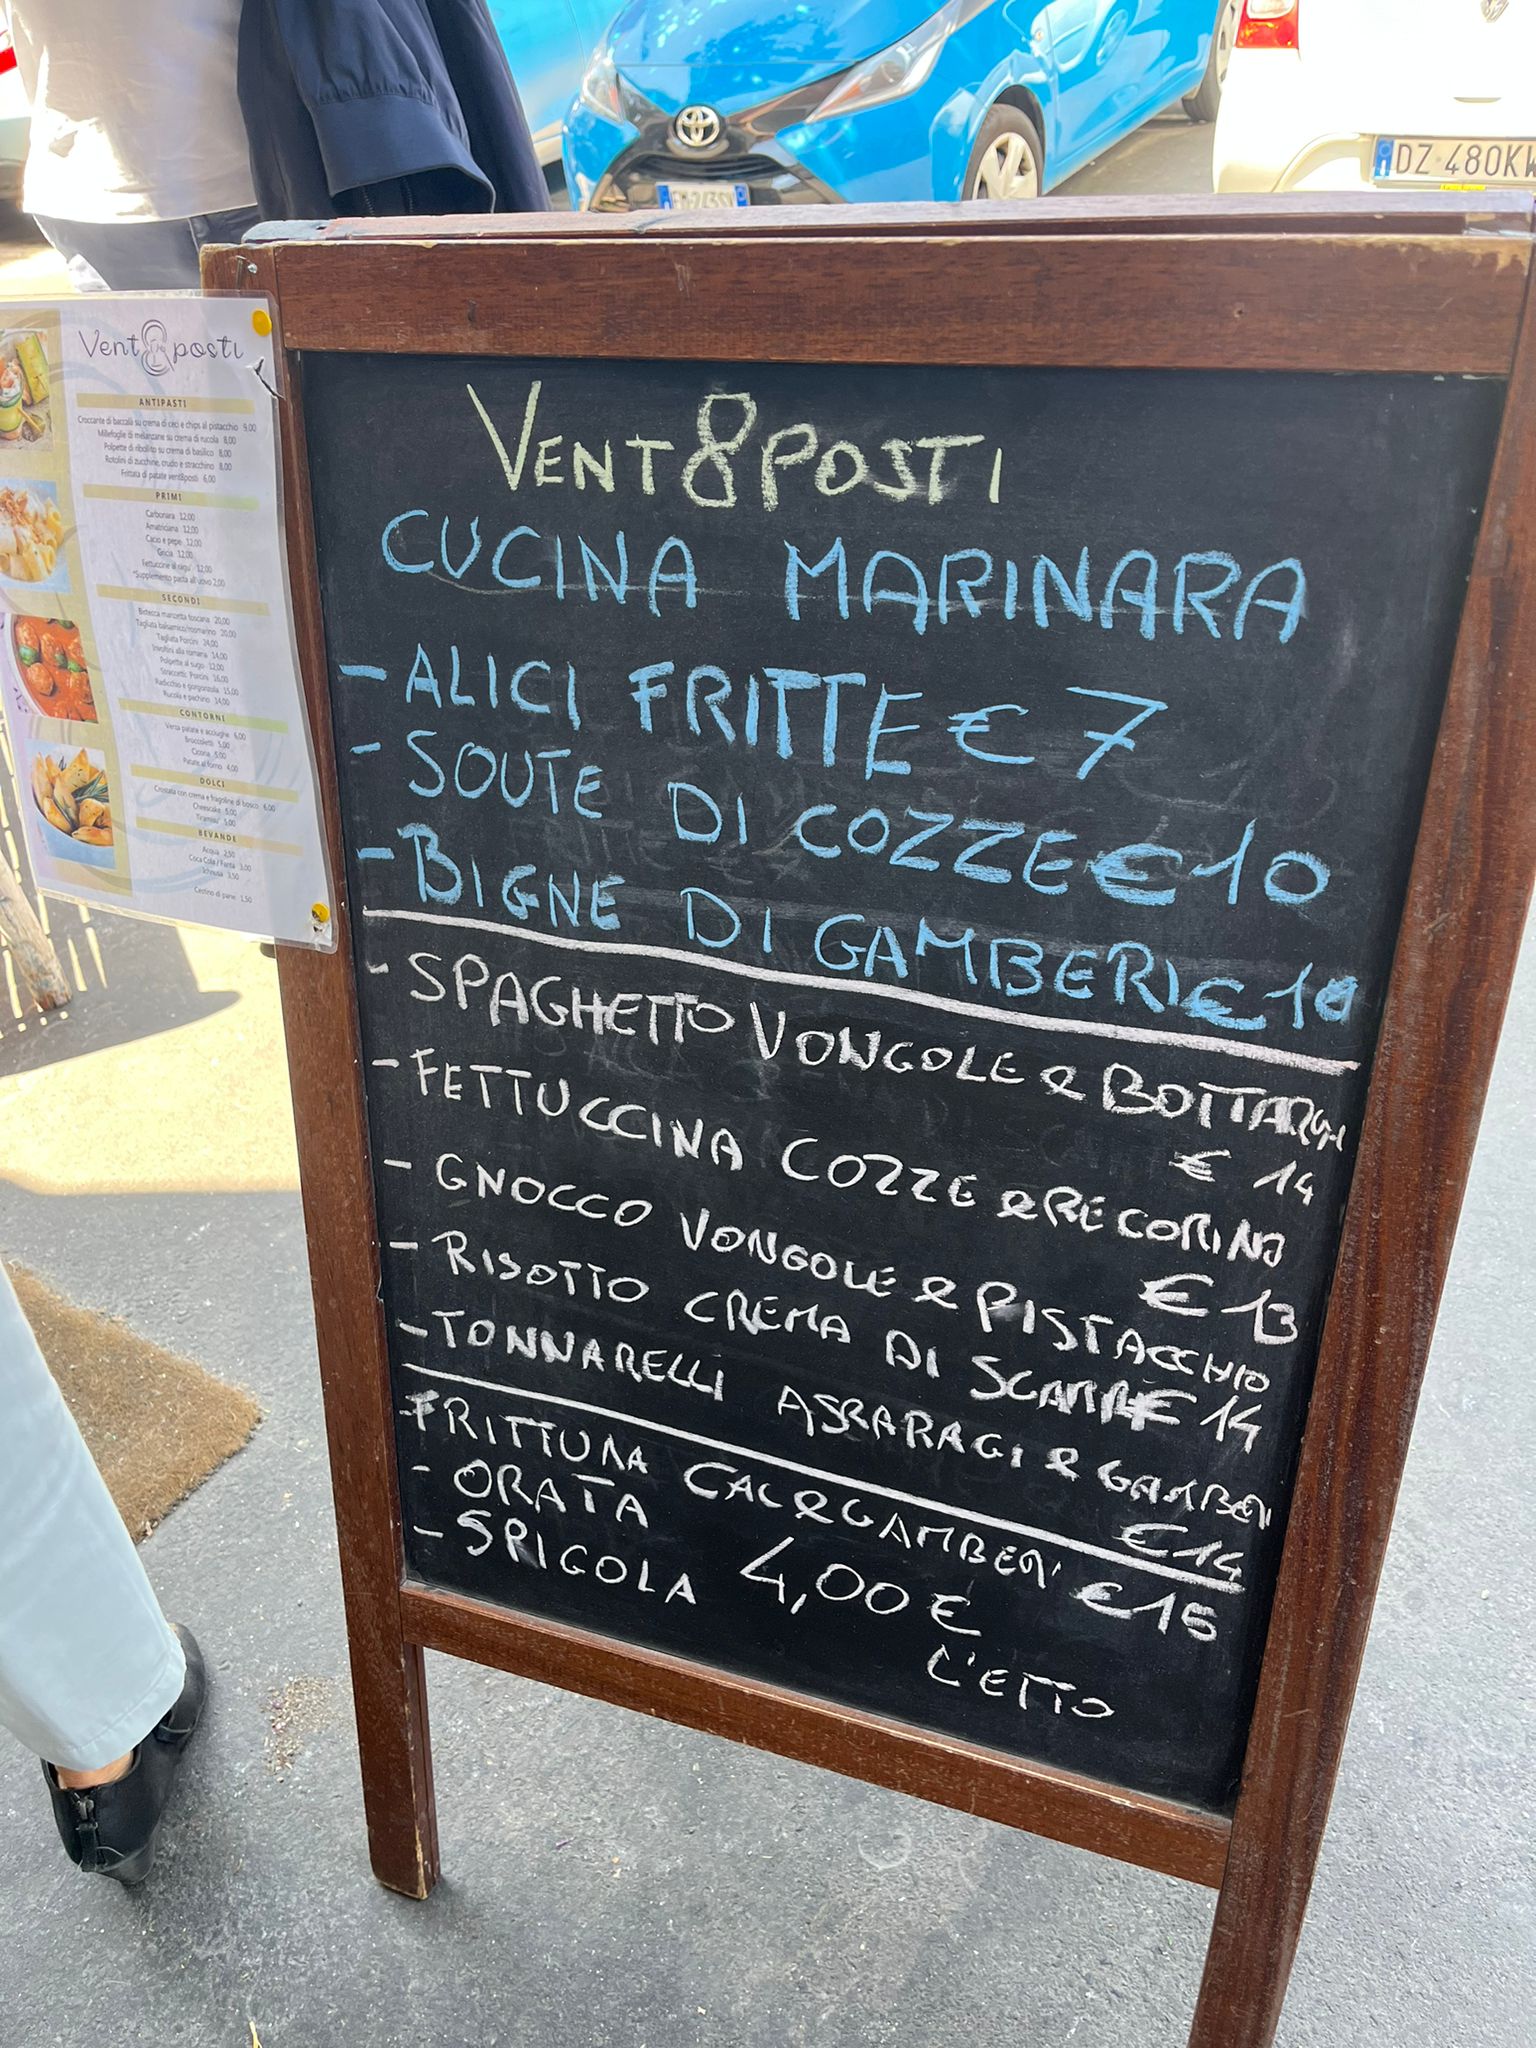 Vent8posti
ANTIPASTI
Croccante di baccalà su crema di ceci e chips al pistacchio 9,00
Millefoglie di melanzane su crema di rucola 8,00
Polpette di bollito su crema di basilico 8,00
Rotolini di zucchine, crudo e stracchino 8,00
Frittata di patate vent8posti 6,00
PRIMI
Carbonara 12,00
Amatriciana 12,00
Cacio e pepe 12,00
Gricia 12,00
Fettuccine al ragu' 12,00
*Supplemento pasta all'uovo 2,00
SECONDI
Bistecca manzetta toscana 20,00
Tagliata balsamico/rosmarino 20,00
Tagliata Porcini 24,00
Involtini alla romana 14,00
Polpette al sugo 12,00
Straccetti: Porcini 16,00
Radicchio e gorgonzola 15,00
Rucola e pachino 14,00
CONTORNI
Verza patate e acciughe 6,00
Broccoletti 5,00
Cicoria 5,00
Patate al forno 4,00
DOLCI
Crostata con crema e fragoline di bosco 6,00
Cheescake 5,00
Tiramisu' 5,00
BEVANDE
Acqua 2,50
Coca Cola / Fanta 3,00
Ichnusa 3,50
Cestino di pane 1,50
VENT8POSTI
CUCINA MARINARA
- ALICI FRITTE € 7
- SOUTE DI COZZE € 10
- BIGNE DI GAMBERI € 10
- SPAGHETTO VONGOLE & BOTTARGA
€ 14
- FETTUCCINA COZZE & PECORINO
€ 13
- GNOCCO VONGOLE & PISTACCHIO
- RISOTTO CREMA DI SCAMPI € 14
- TONNARELLI ASPARAGI & GAMBERI
€ 14
- FRITTURA CAL&GAMBERI € 15
- ORATA
- SPIGOLA 4,00 €
L'ETTO
DZ 480KW